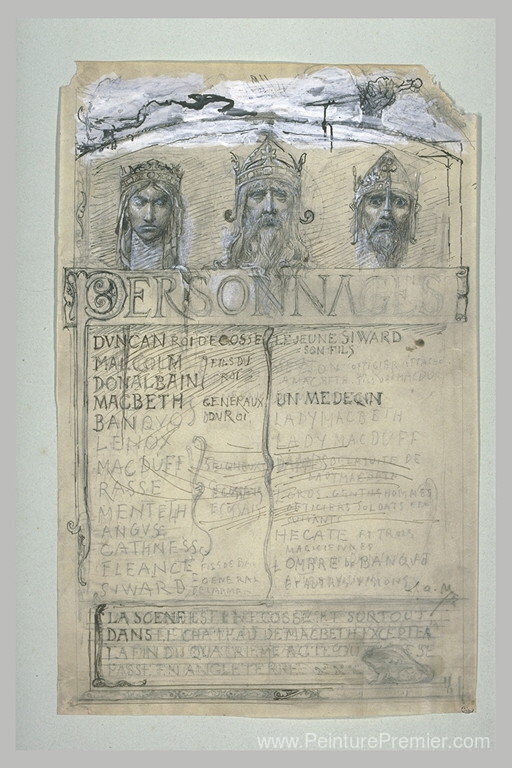 PERSONNAGES
DVNCAN ROI DECOSSE
MALCOLM
DONALBAIN
FILS DU
ROI
MACBETH
BANQVO
GENERAUX
DU ROI
LENOX
MACDUFF
RASSE
MENTETH
ANGVSE
CATHNESS
SEIGNEURS
ECOSSAIS
FLEANCE FILS DE BAN
SIWARD GENERAL
LE JEUNE SIWARD
SON FILS
OFFICIER ATTACHE
A MACBETH
UN MEDECIN
LADY MACBETH
LADY MACDUFF
DAMES DE LA SUITE DE
LADY MACBETH
GENTILSHOMMES
OFFICIERS SOLDATS
SUIVANTS
HECATE ET TROIS
MAGICIENNES
L'OMBRE DE BANQVO
LA SCENE EST EN ECOSSE ET SURTOUT
DANS LE CHATEAU DE MACBETH EXCEPTE A
LA FIN DU QUATRIEME ACTE OU SE
PASSE EN ANGLETERRE
www.PeinturePremier.com